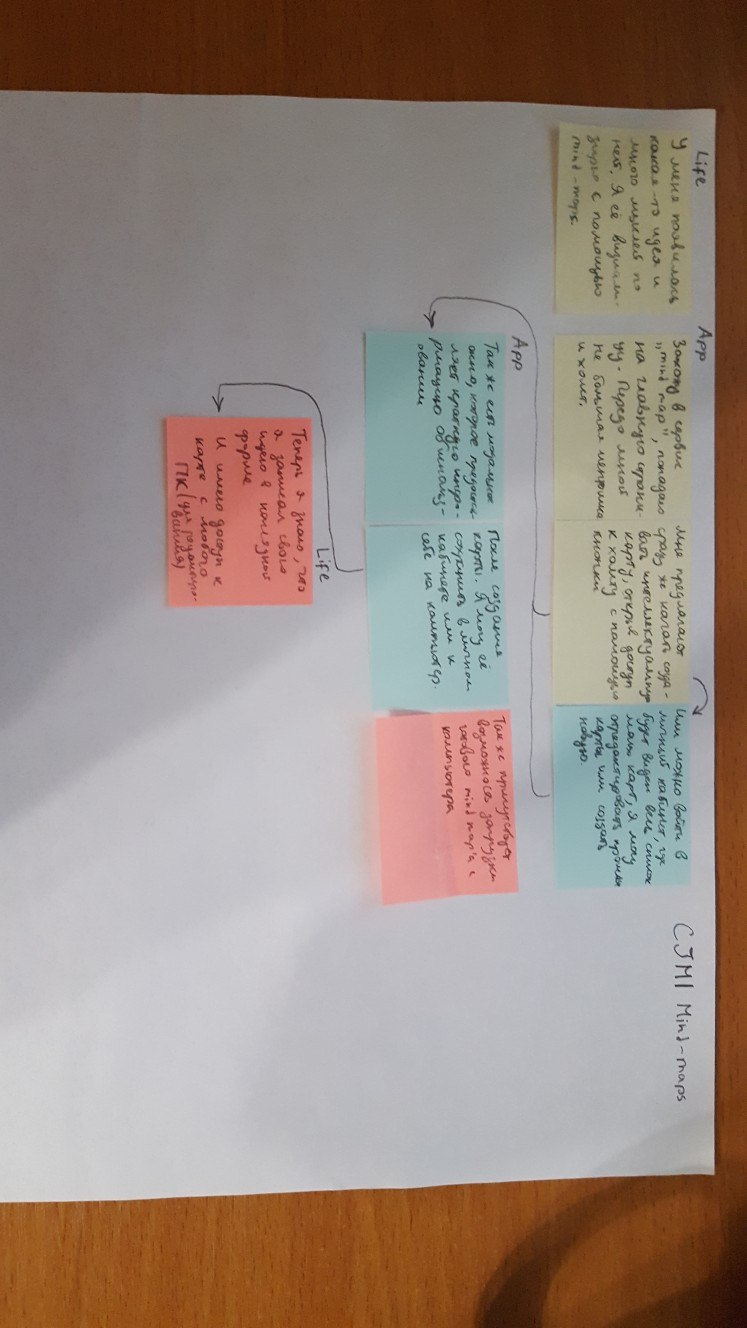 Life
У меня появилась
какая-то идея и
много мыслей по
ней. Я её визуали-
зирую с помощью
mind-maps.
App
Захожу в сервис
"mind map", попадаю
на главную страни-
цу. Передо мной
не большая менюшка
и холст.
Мне предлагают
сразу же начать созда-
вать интеллектуальную
карту, открыв доступ
к холсту с помощью
кнопки
Или можно войти в
личный кабинет, где
будет виден весь список
моих карт, я могу
отредактировать прошлые
карты или создать
новую.
CJM1 Mind-maps
App
Так же есть модальное
окно, которое предостав-
ляет краткую инфо-
рмацию об использ-
овании
После создания
карты. Я могу её
сохранить в личном
кабинете или к
себе на компьютер.
Так же присутствует
возможность загрузки
готового mind map'а с
компьютера
Life
Теперь я знаю, что
я записал свою
идею в наглядной
форме
И имею доступ к
карте с любого
ПК (для редактиро-
вания)